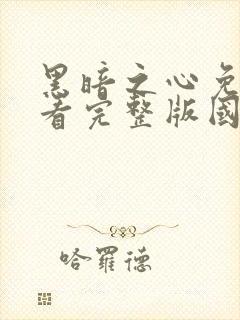 黑暗之心免
看完整版國
哈羅德